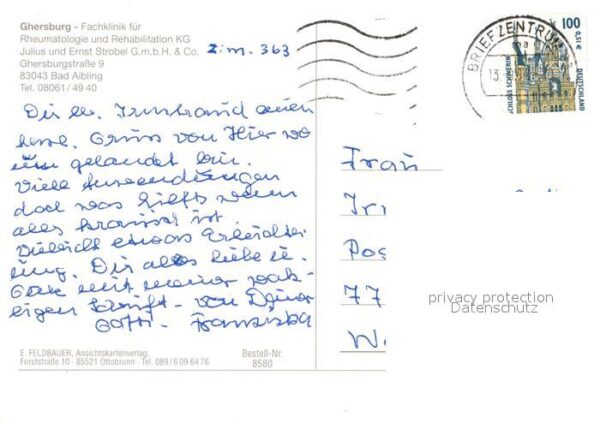 Ghersburg - Fachklinik für
Rheumatologie und Rehabilitation KG
Julius und Ernst Strobel G.m.b.H. & Co.
Ghersburgstraße 9
83043 Bad Aibling
Tel. 08061/49 40
Zim. 363
Dir lb. Irmtraud einen
herzl. Gruss von Hier wo
gelandet bin.
Viele Anwendungen
doch was hilfts wenn
alles kaputt ist
Vielleicht etwas Erleichter
ung. Dir alles Liebe u.
Gute mit meiner wak-
eligen Schrift - von Deiner
Franziska
E. FELDBAUER, Ansichtskartenverlag,
Forststraße 10 - 85521 Ottobrunn - Tel. 089/6 09 64 76
Bestell-Nr.
8580
BRIEFZENTRUM
13.
100
0,51€
DEUTSCHLAND
SCHLOSS SCHWERIN
Frau
Ir
Pos
77
W
privacy protection
Datenschutz